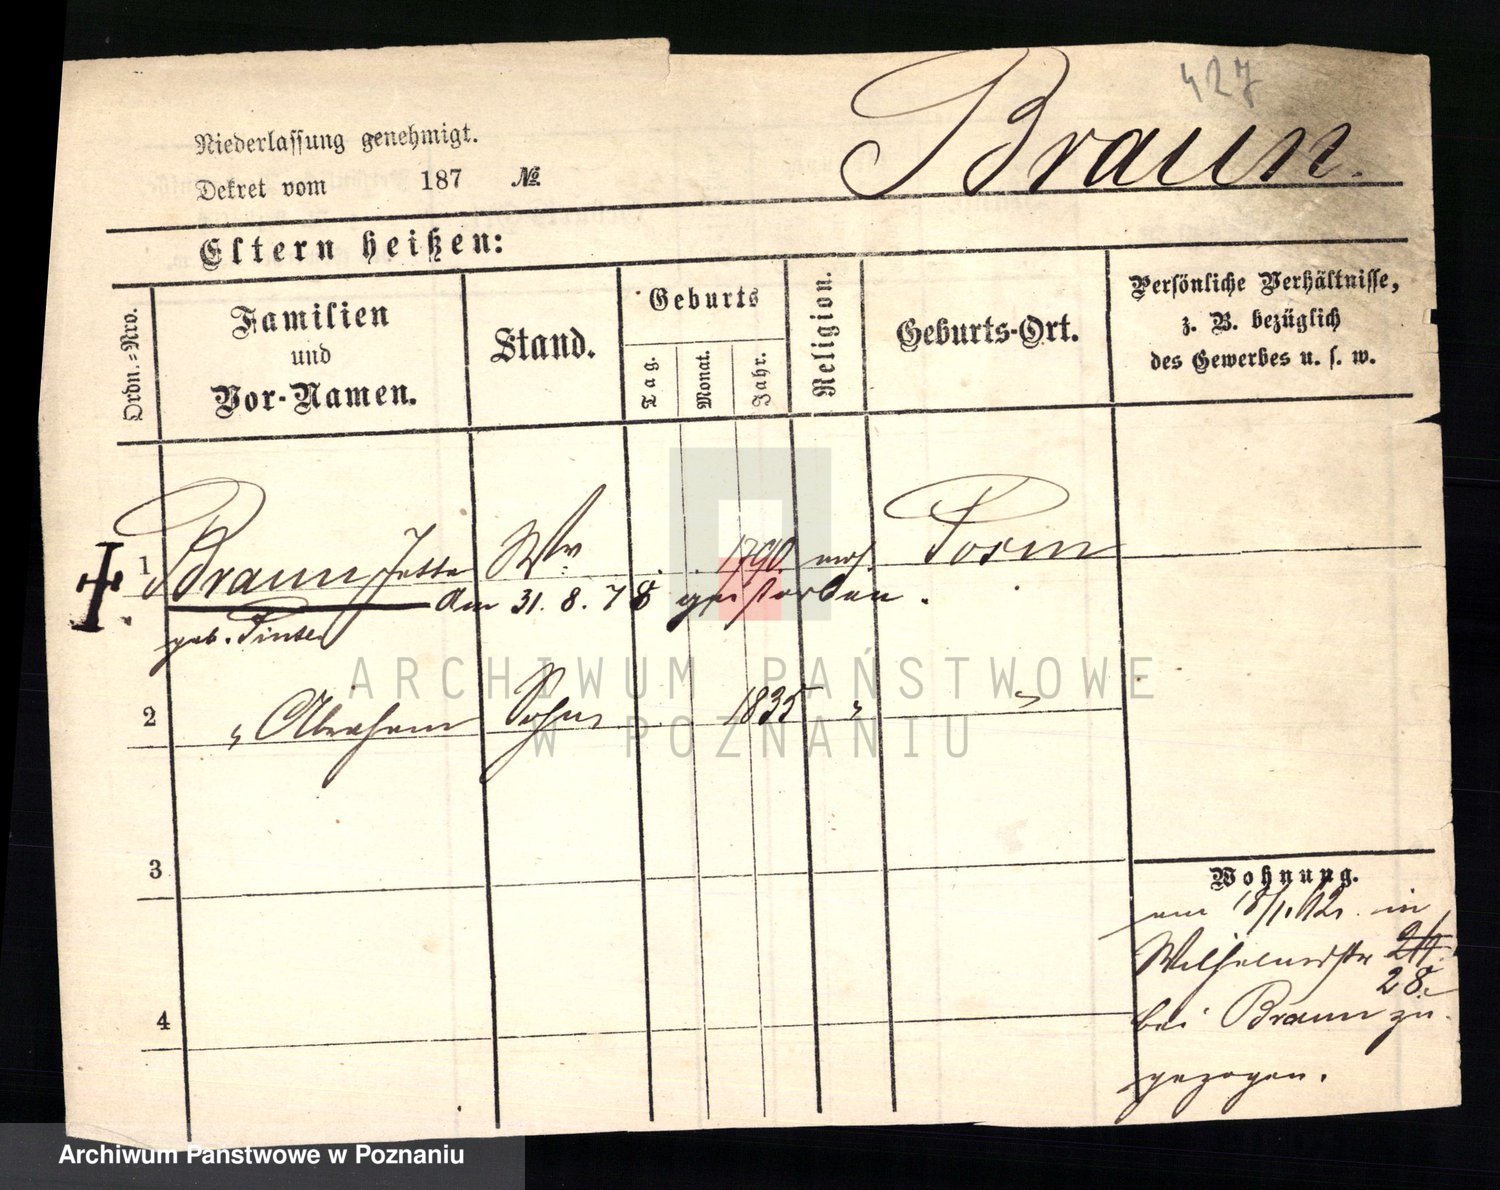 427
Braun.
Niederlassung genehmigt.
Dekret vom 187 №
Eltern heißen:
Ordn.-Nro.
Familien
und
Vor-Namen.
Stand.
Geburts
Tag.
Monat.
Jahr.
Religion.
Geburts-Ort.
Persönliche Verhältnisse,
z. B. bezüglich
des Gewerbes u. s. w.
1 Braun Jette Ww 1790 mos. Posen
am 31. 8. 78 gestorben.
geb. Pinter
2 " Abraham Sohn 1835 " "
3
4
Wohnung.
am 18/1. 12. in
Wilhelmstr 24.
28.
bei Braun zu-
gezogen.
ARCHIWUM PAŃSTWOWE
W POZNANIU
Archiwum Państwowe w Poznaniu